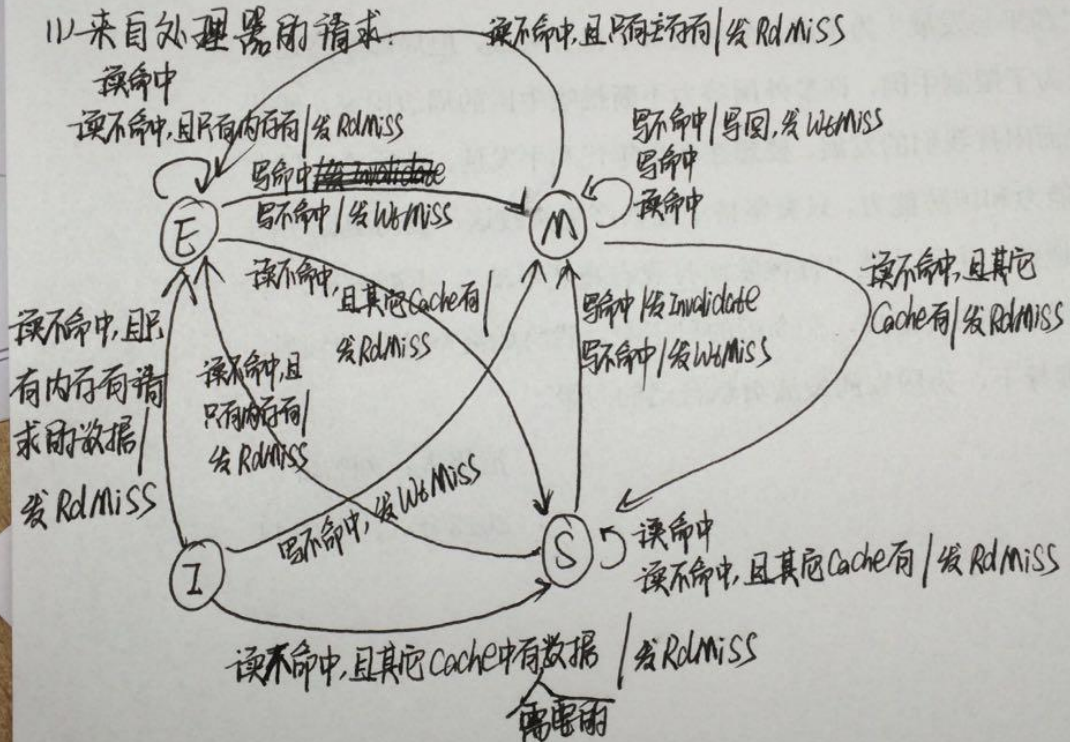 (1)来自处理器的请求
读不命中,且只有主存有/发RdMiss
读命中
读不命中,且只有内存有/发RdMiss
写不命中/写回,发WtMiss
写命中
读命中
写命中
写不命中/发WtMiss
E
M
读不命中,且其它Cache有/
发RdMiss
读不命中,且其它
Cache有/发RdMiss
写命中/发Invalidate
写不命中/发WtMiss
读不命中,且只
有内存有请
求的数据/
发RdMiss
读不命中,且
只有内存有/
发RdMiss
写不命中,发WtMiss
I
S
读命中
读不命中,且其它Cache有/发RdMiss
读不命中,且其它Cache中有数据/发RdMiss
需要的